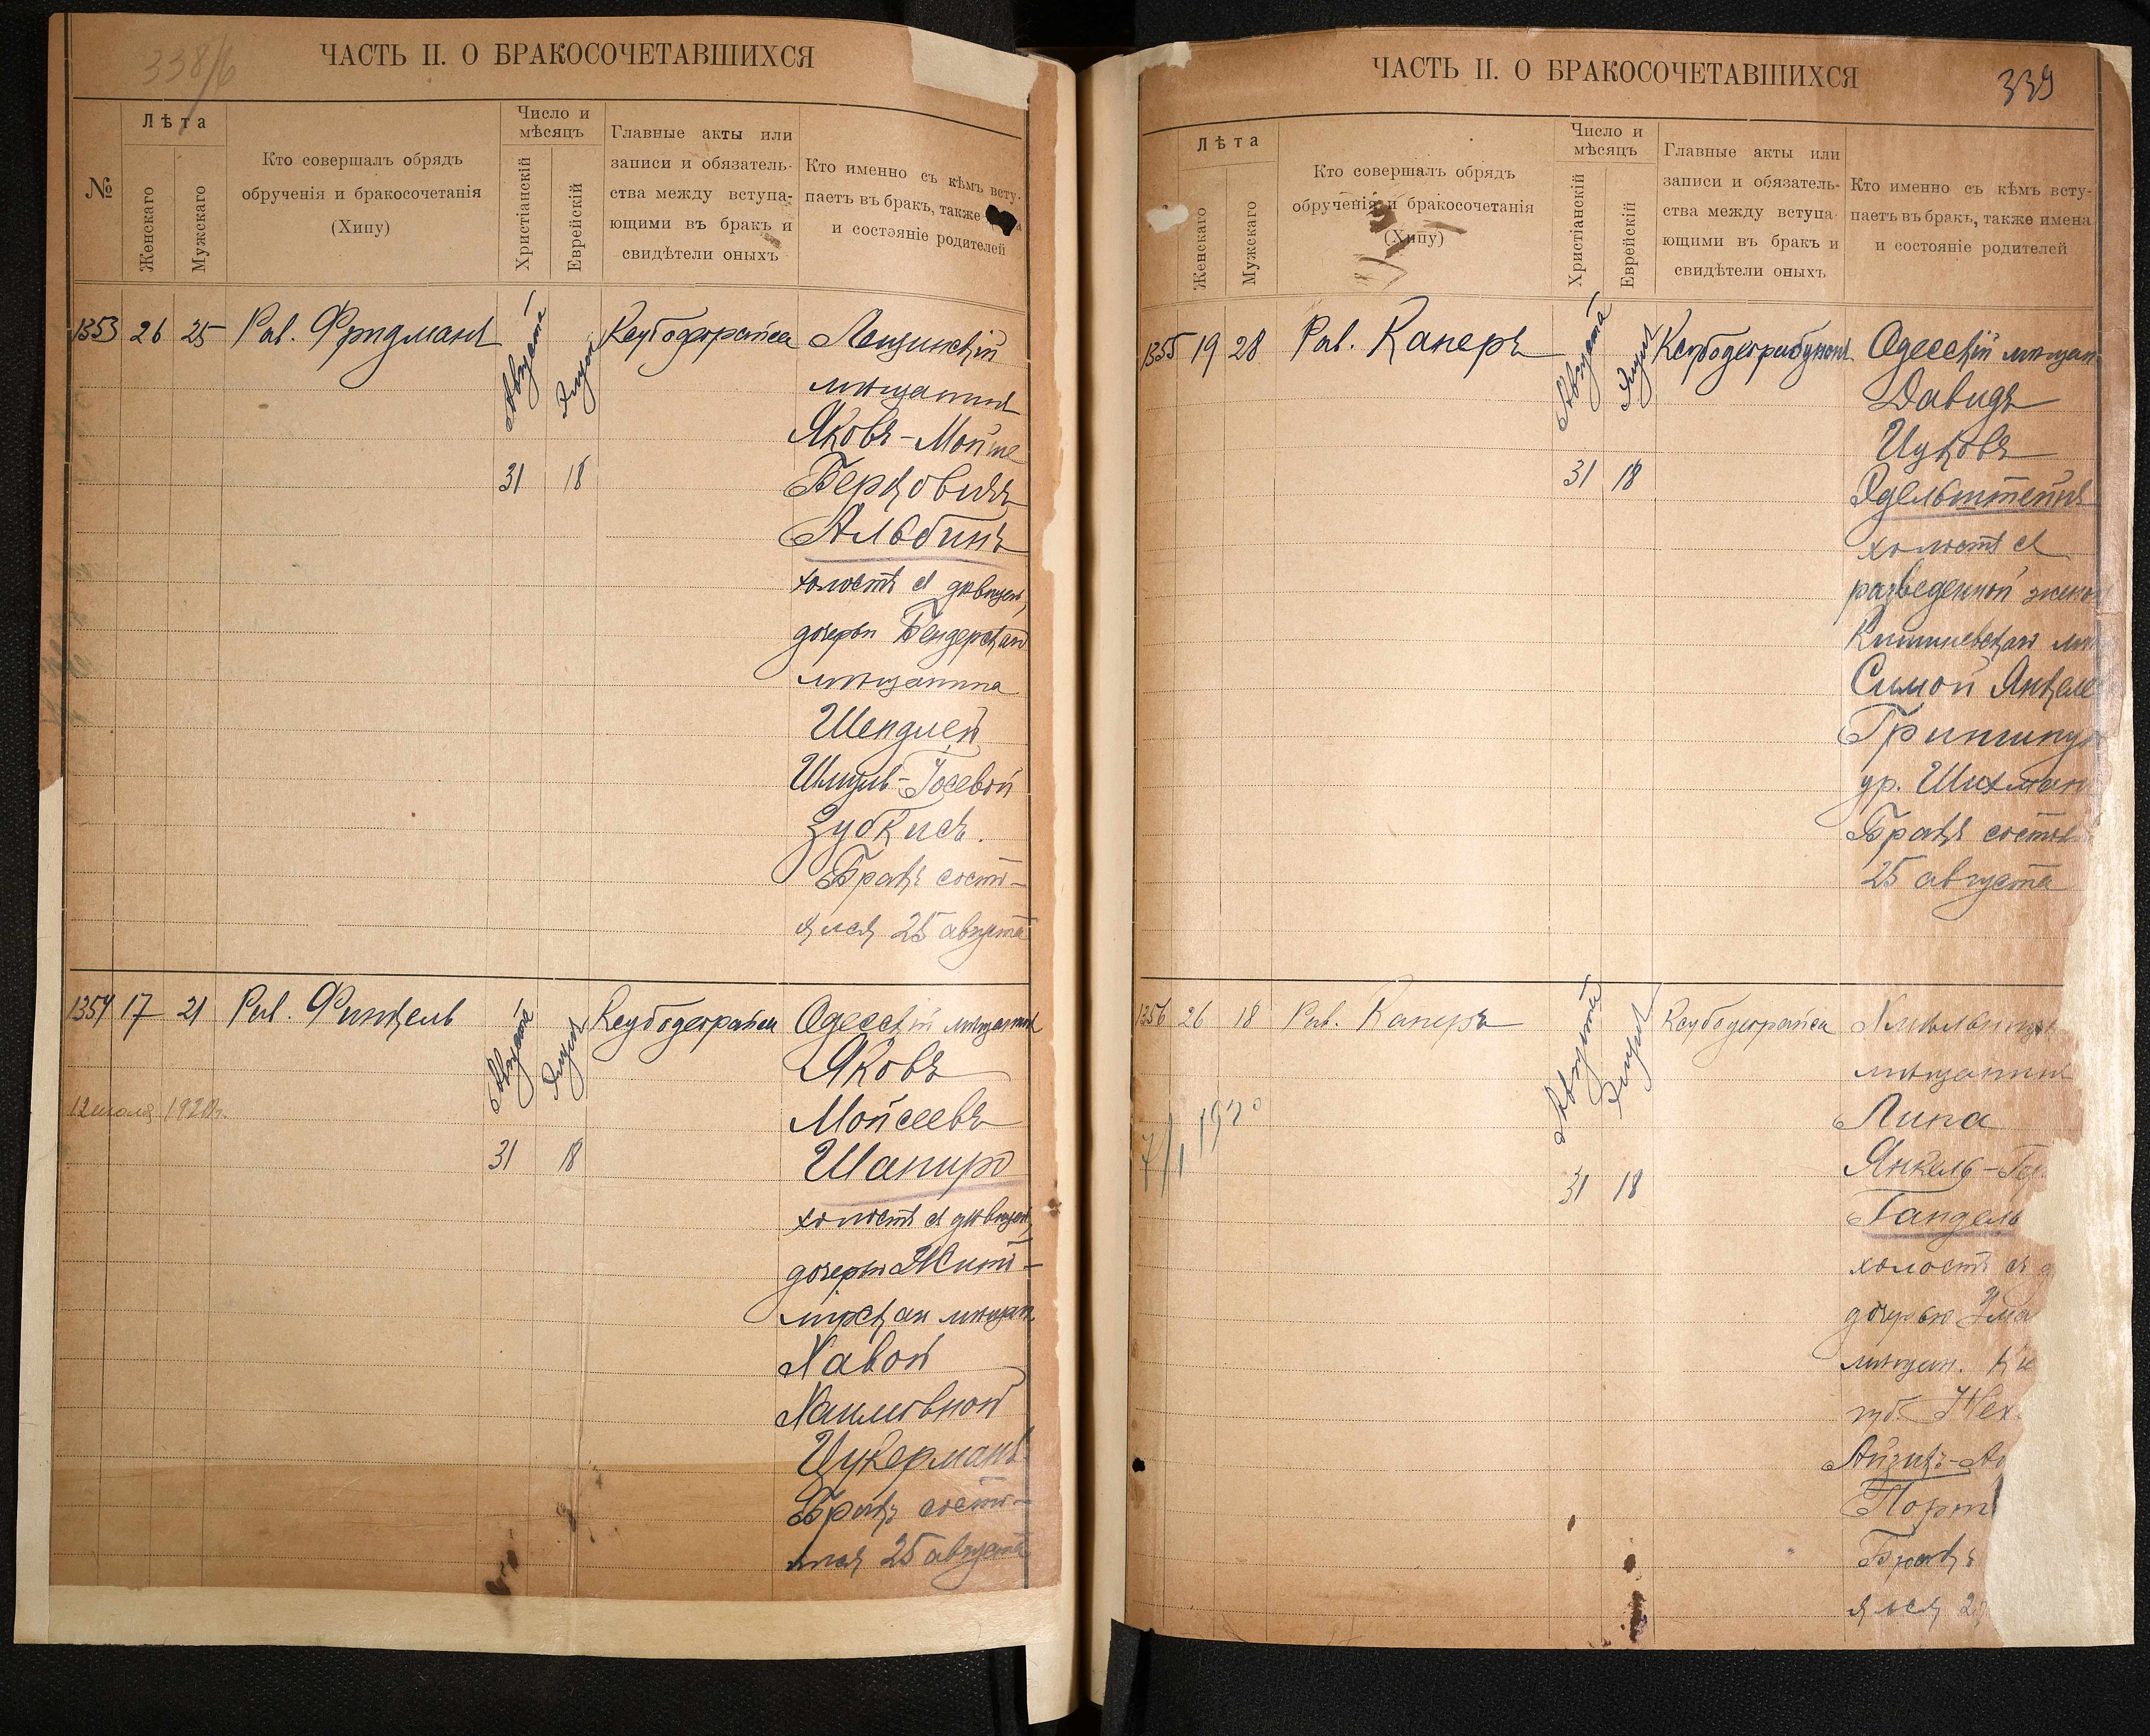 338/б
ЧАСТЬ II. О БРАКОСОЧЕТАВШИХСЯ
№
Лѣта
Женскаго
Мужскаго
Кто совершалъ обрядъ
обрученія и бракосочетанія
(Хипу)
Число и
мѣсяцъ
Христіанскій
Еврейскій
Главные акты или
записи и обязатель-
ства между вступа-
ющими въ бракъ и
свидѣтели оныхъ
Кто именно съ кѣмъ всту-
паетъ въ бракъ, также
и состояніе родителей
1353 26 25 Рав. Фридманъ
Августа
Элуля
31 18
Ксубодеграйса
мѣщанинъ
Яковъ-Мойше
Берковичъ
Альбинъ
холостъ съ дѣвицей,
дочерью Бендерскаго
мѣщанина
Шейндлей
Шмуль-Іосевой
Зубкисъ.
Бракъ состо-
ялся 25 августа
1354 17 21 Рав. Финкель
12 июля 1920г.
Августа
Элуля
31 18
Ксубодеграйса
Одесскій мѣщанинъ
Яковъ
Мойсеевъ
Шапиро
холостъ съ дѣвицей,
дочерью Жито-
мірскаго мѣщан.
Хавой
Хаимовной
Цукерманъ
Бракъ состо-
ялся 25 августа
ЧАСТЬ II. О БРАКОСОЧЕТАВШИХСЯ
339
Лѣта
Женскаго
Мужскаго
Кто совершалъ обрядъ
обрученія и бракосочетанія
(Хипу)
Число и
мѣсяцъ
Христіанскій
Еврейскій
Главные акты или
записи и обязатель-
ства между вступа-
ющими въ бракъ и
свидѣтели оныхъ
Кто именно съ кѣмъ всту-
паетъ въ бракъ, также имена
и состояніе родителей
1355 19 28 Рав. Каперъ
Августа
Элуля
31 18
Одесскій мѣщан
Давидъ
Ицковъ
Эдельштейнъ
холостъ съ
разведенной женой
Кишиневскаго мѣщ
Симой Янкеле
ур. Шихман
Бракъ состоя
25 августа
1356 26 18 Рав. Каперъ
7/I 1920
Августа
Элуля
31 18
Ксубодеграйса
мѣщанинъ
Липа
Янкель-Гер
Гандель
холостъ съ д
дочерью Ума
мѣщан. Кі
губ.
Айзикъ-
Порт
Бракъ
ялся 2